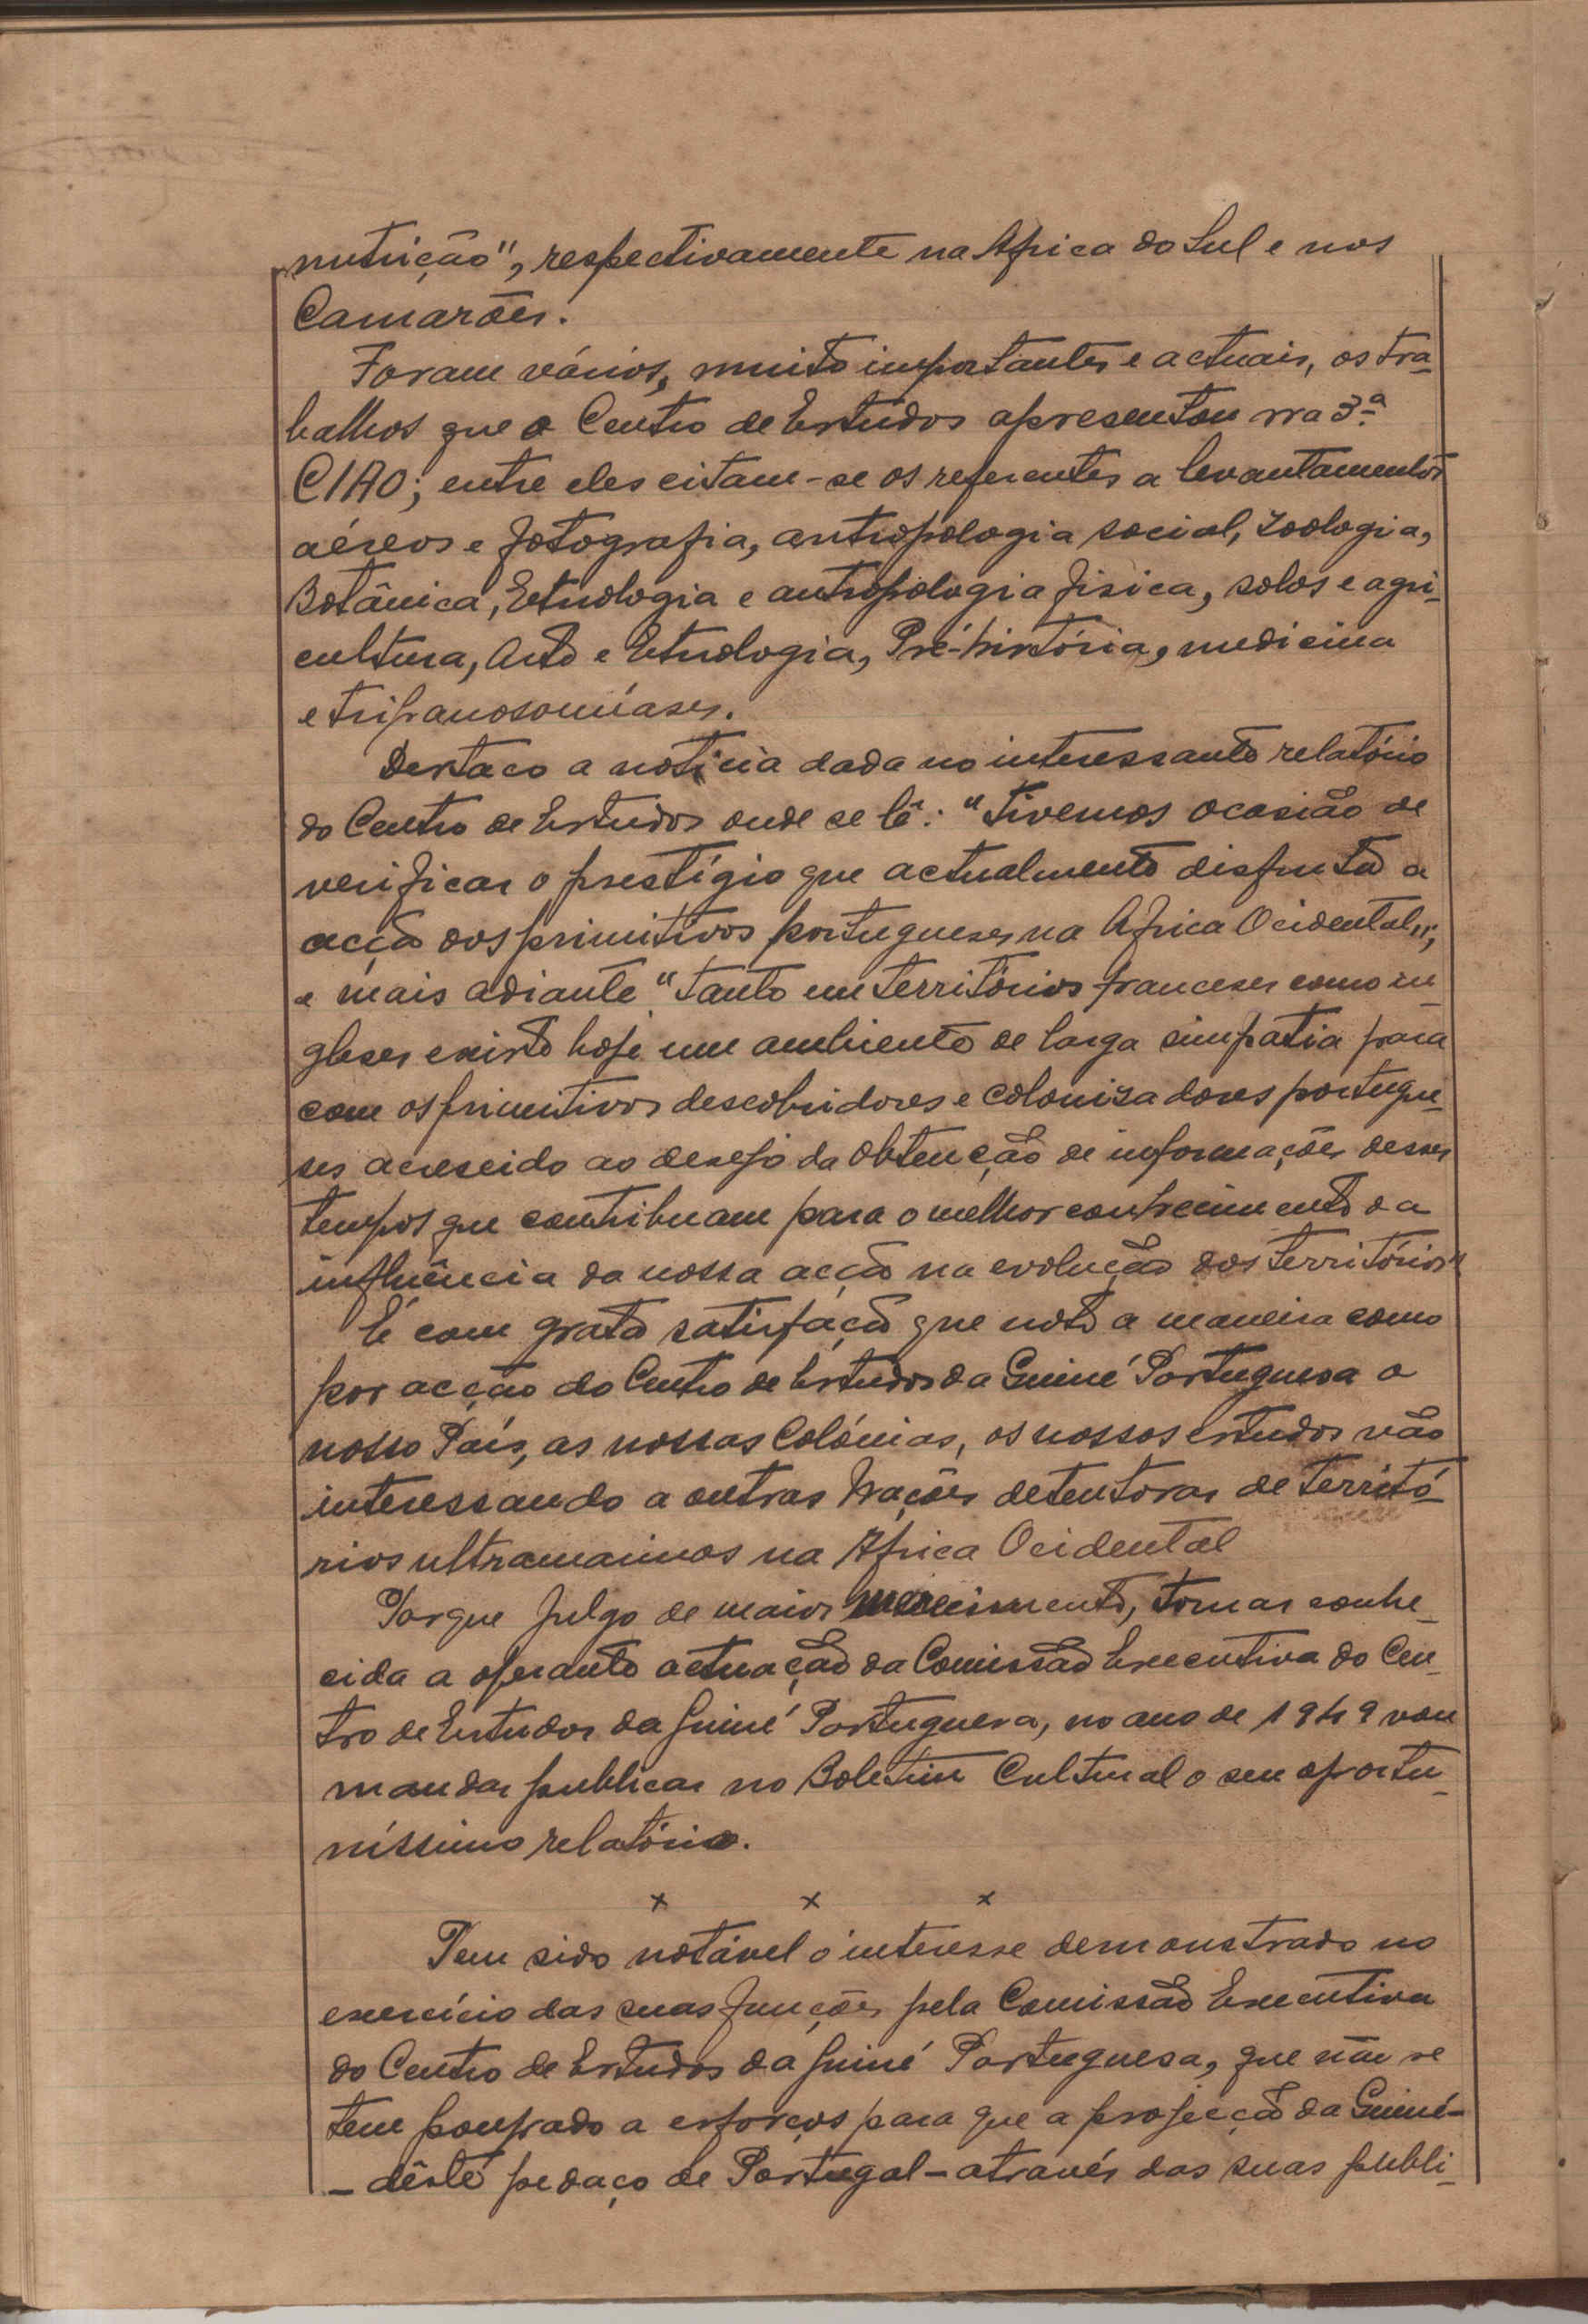 nutrição", respectivamente na Africa do Sul e nos
Camarões.
Foram vários, muito importantes e actuais, os tra-
balhos que o Centro de Estudos apresentou na 3ª
CIAO; entre eles citam-se os referentes a levantamentos
aéreos e fotografia, antropologia social, Zoologia,
Botânica, Etnologia e antropologia física, solos e agri-
cultura, Arte e Etnologia, Pré-história, medicina
e tripanosomíases.
Destaco a notícia dada no interessante relatório
do Centro de Estudos onde se lê: "Tivemos ocasião de
verificar o prestígio que actualmente disfruta a
acção dos primitivos portugueses na Africa Ocidental";
e mais adiante "Tanto em territórios franceses como in-
gleses existe hoje um ambiente de larga simpatia para
com os primitivos descobridores e colonizadores portugue-
ses acrescido ao desejo da obtenção de informações desses
tempos que contribuam para o melhor conhecimento da
influência da nossa acção na evolução dos territórios"
É com grata satisfação que noto a maneira como
por acção do Centro de Estudos da Guiné Portuguesa o
nosso País, as nossas Colónias, os nossos estudos vão
interessando a outras Nações detentoras de territó-
rios ultramarinos na Africa Ocidental
Porque julgo de maior merecimento, tornar conhe-
cida a operante actuação da Comissão Executiva do Cen-
tro de Estudos da Guiné Portuguesa, no ano de 1949 vou
mandar publicar no Boletim Cultural o seu oportu-
níssimo relatório.
x x x
Tem sido notável o interesse demonstrado no
exercício das suas funções pela Comissão Executiva
do Centro de Estudos da Guiné Portuguesa, que não se
tem poupado a esforços para que a projecção da Guiné-
- dêste pedaço de Portugal - através das suas publi-